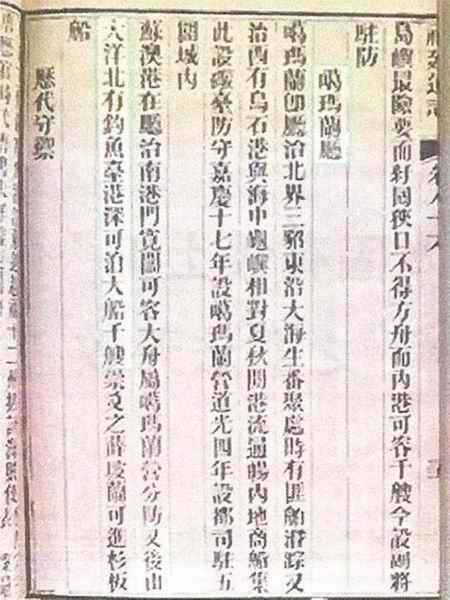 福建通志 卷八十六
島嶼最險要而紆回狹口不得方舟而內港可容千艘今設副將
駐防
噶瑪蘭廳
噶瑪蘭即廳治北界三貂東沿大海生番聚處時有匪船潛踪又
治西有烏石港與海中龜嶼相對夏秋間港流通暢內地商船集
此設礮臺防守嘉慶十七年設噶瑪蘭營道光四年設都司駐五
圍城內
蘇澳港在廳治南港門寬闊可容大舟屬噶瑪蘭營分防又後山
大洋北有釣魚臺港深可泊大船千艘崇爻之薛坡蘭可進杉板
船
歷代守禦